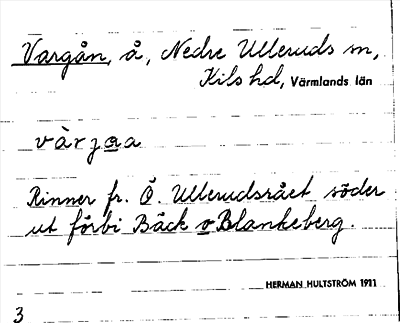 Vargån, å, Nedre Ulleruds sn,
Kils hd, Värmlands län
vàrjaa
Rinner fr. Ö. Ullerudsrået söder
ut förbi Bäck o Blankeberg.
HERMAN HULTSTRÖM 1911
3